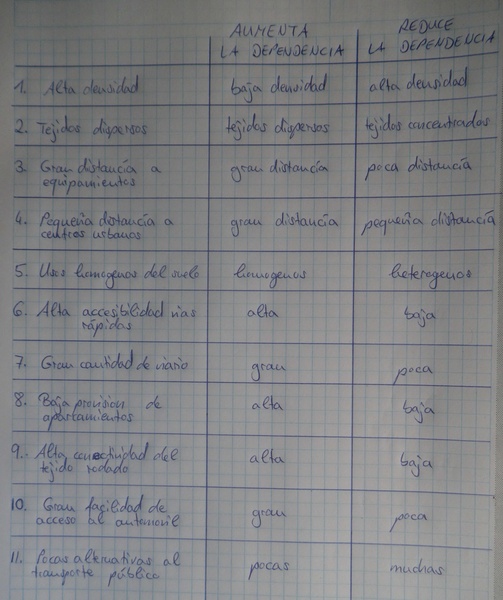 AUMENTA LA DEPENDENCIA
REDUCE LA DEPENDENCIA
1. Alta densidad baja densidad alta densidad
2. Tejidos dispersos tejidos dispersos tejidos concentrados
3. Gran distancía a equipamientos gran distancía poca distancía
4. Pequeña distancía a centros urbanos gran distancía pequeña distancía
5. Usos homogenos del suelo homogenos heterogenos
6. Alta accesibilidad vias rápidas alta baja
7. Gran cantidad de viario gran poca
8. Baja provision de apartamientos alta baja
9. Alta conectividad del tejido rodado alta baja
10. Gran facilidad de acceso al automovil gran poca
11. Pocas alternativas al transporte público pocas muchas